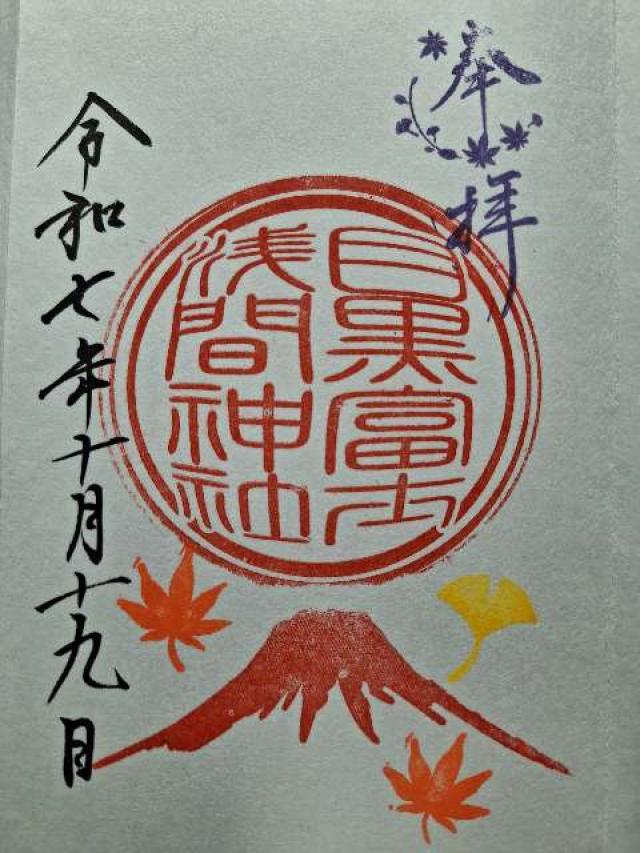 奉拝
目黒富士
浅間神社
令和七年十月十九日